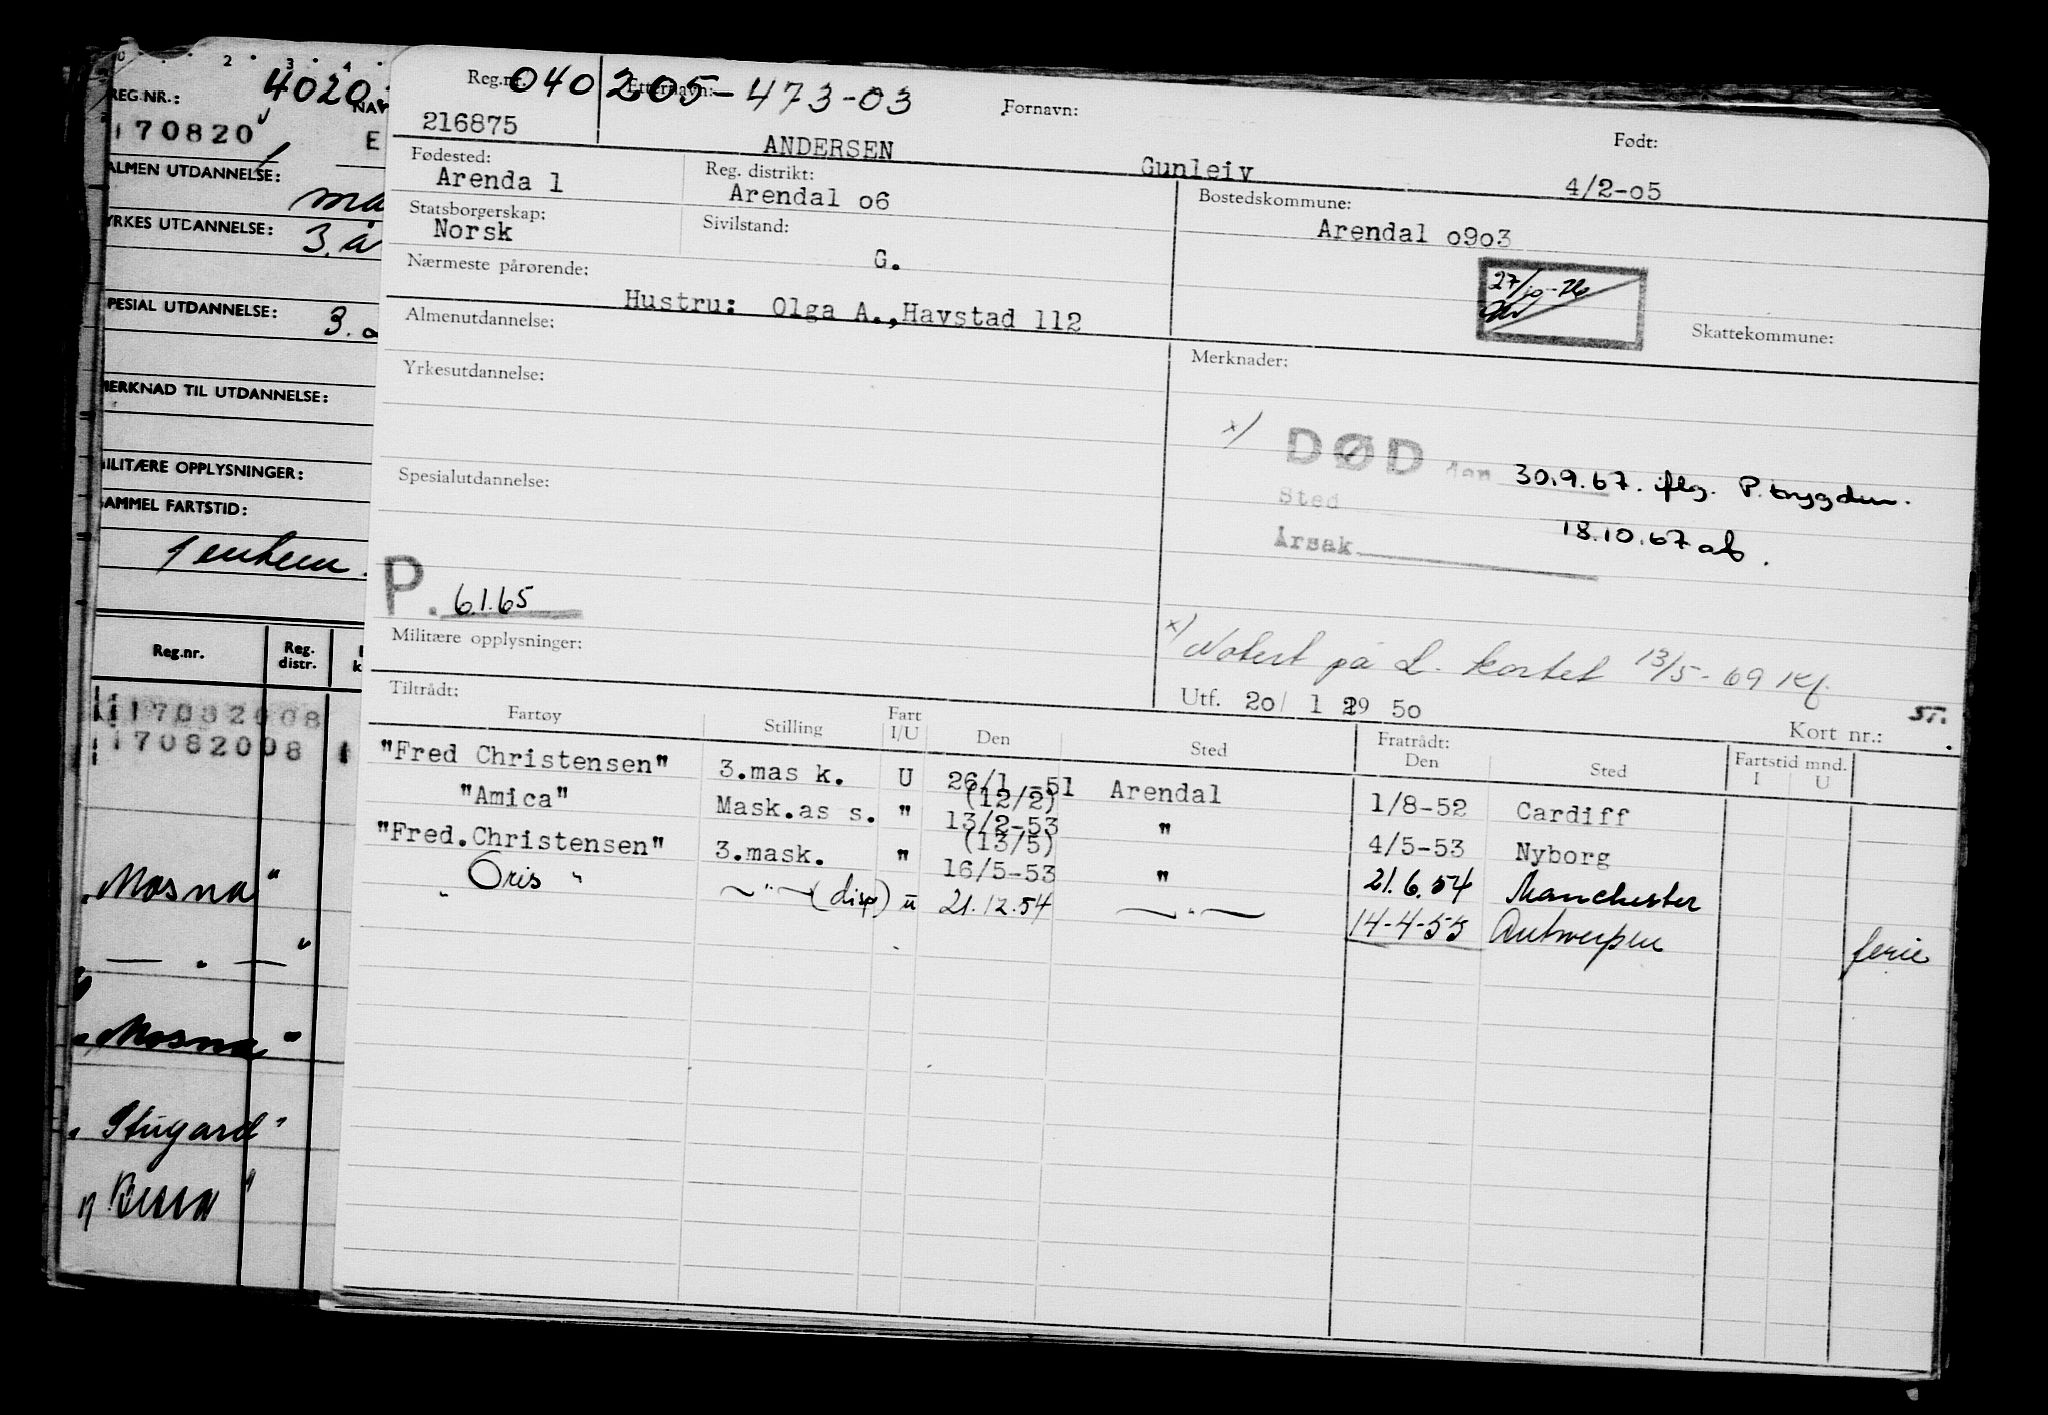 REG.NR.: 4020
NAV
170820 E
ALMEN UTDANNELSE:
YRKES UTDANNELSE: 3. å
SPESIAL UTDANNELSE: 3.
MERKNAD TIL UTDANNELSE:
MILITÆRE OPPLYSNINGER:
SAMMEL FARTSTID:
Reg.nr. Reg. distr.
117082008
17082008
"Mosna"
— " — "
"Mosna"
"Stugard"
"Bessa"
Reg.nr. 040205-473-03 Etternavn: Fornavn: Født:
216875 ANDERSEN Gunleiv 4/2-05
Fødested: Reg. distrikt: Bostedskommune:
Arendal Arendal 06 Arendal 0903
Statsborgerskap: Sivilstand:
Norsk G.
Nærmeste pårørende: 27/10-76
Hustru: Olga A., Havstad 112
Skattekommune:
Almenutdannelse: Merknader:
Yrkesutdannelse:
x) DØD den 30.9.67. iflg. P.trygden.
Sted 18.10.67
Årsak
Spesialutdannelse:
P. 6.1.65
x) Notert på L. kortet 13/5-69 Kf.
Militære opplysninger:
Utf. 20/ 12 19 50 Kort nr.: 5T.
Tiltrådt: Fratrådt:
Fartøy Stilling Fart I/U Den Sted Den Sted Fartstid mnd. I U
"Fred Christensen" 3.mask. U 26/1 -51 Arendal 1/8-52 Cardiff
"Amica" Mask.ass. " (12/2) 13/2-53 " 4/5-53 Nyborg
"Fred.Christensen" 3.mask. " (13/5) 16/5-53 " 21.6.54 Manchester
" Oris " — " — (disp) U 21.12.54 — " — 14-4-55 Antwerpen ferie